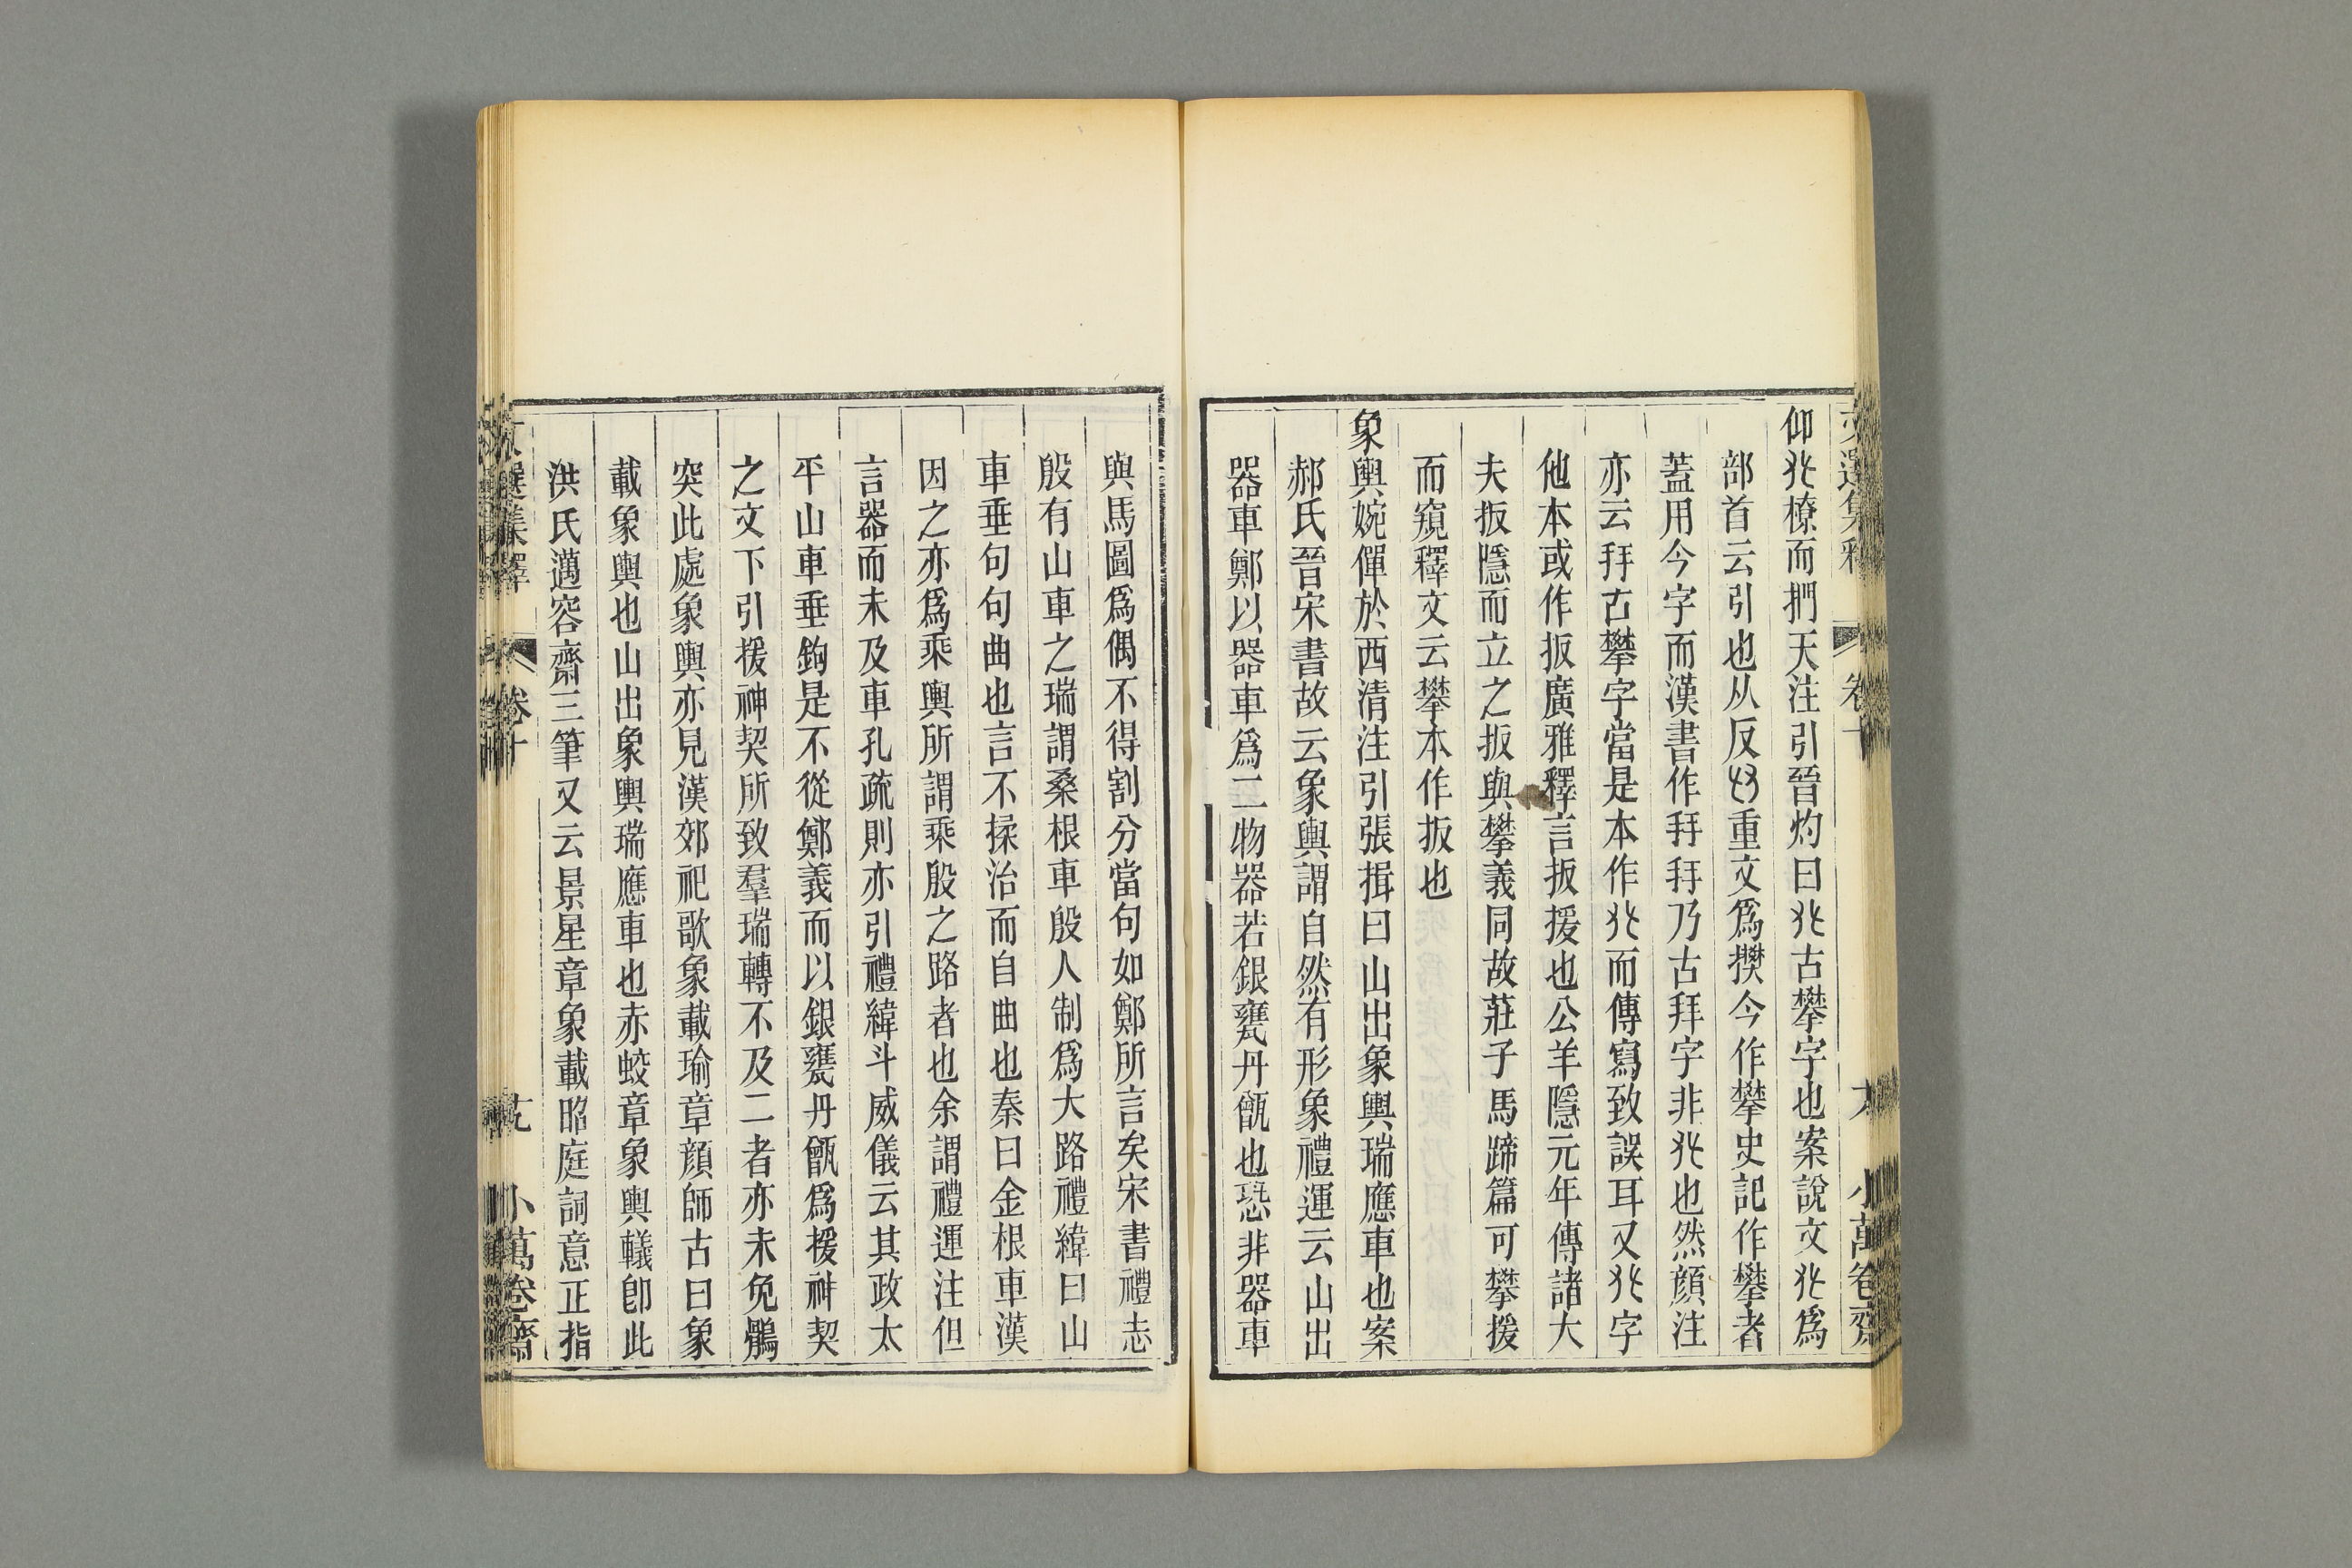 文選集釋 卷十 六 小萬卷齋
仰𠬜橑而捫天注引晉灼曰𠬜古攀字也案說文𠬜爲
部首云引也从反𠬞重文爲攀今作攀史記作攀者
蓋用今字而漢書作拜拜乃古拜字非𠬜也然顔注
亦云拜古攀字當是本作𠬜而傳寫致誤耳又𠬜字
他本或作扳廣雅釋言扳援也公羊隱元年傳諸大
夫扳隱而立之扳與攀義同故莊子馬蹄篇可攀援
而窺釋文云攀本作扳也
象輿婉僤於西清注引張揖曰山出象輿瑞應車也案
郝氏晉宋書故云象輿謂自然有形象禮運云山出
器車鄭以器車爲二物器若銀甕丹甑也恐非器車
與馬圖爲偶不得割分當句如鄭所言矣宋書禮志
殷有山車之瑞謂桑根車殷人制爲大路禮緯曰山
車垂句句曲也言不揉治而自曲也秦曰金根車漢
因之亦爲乘輿所謂乘殷之路者也余謂禮運注但
言器而未及車孔疏則亦引禮緯斗威儀云其政太
平山車垂鉤是不從鄭義而以銀甕丹甑爲援神契
之文下引援神契所致羣瑞轉不及二者亦未免鶻
突此處象輿亦見漢郊祀歌象載瑜章顔師古曰象
載象輿也山出象輿瑞應車也赤蛟章象輿轙卽此
洪氏邁容齋三筆又云景星章象載昭庭詞意正指
文選集釋 卷十 小萬卷齋